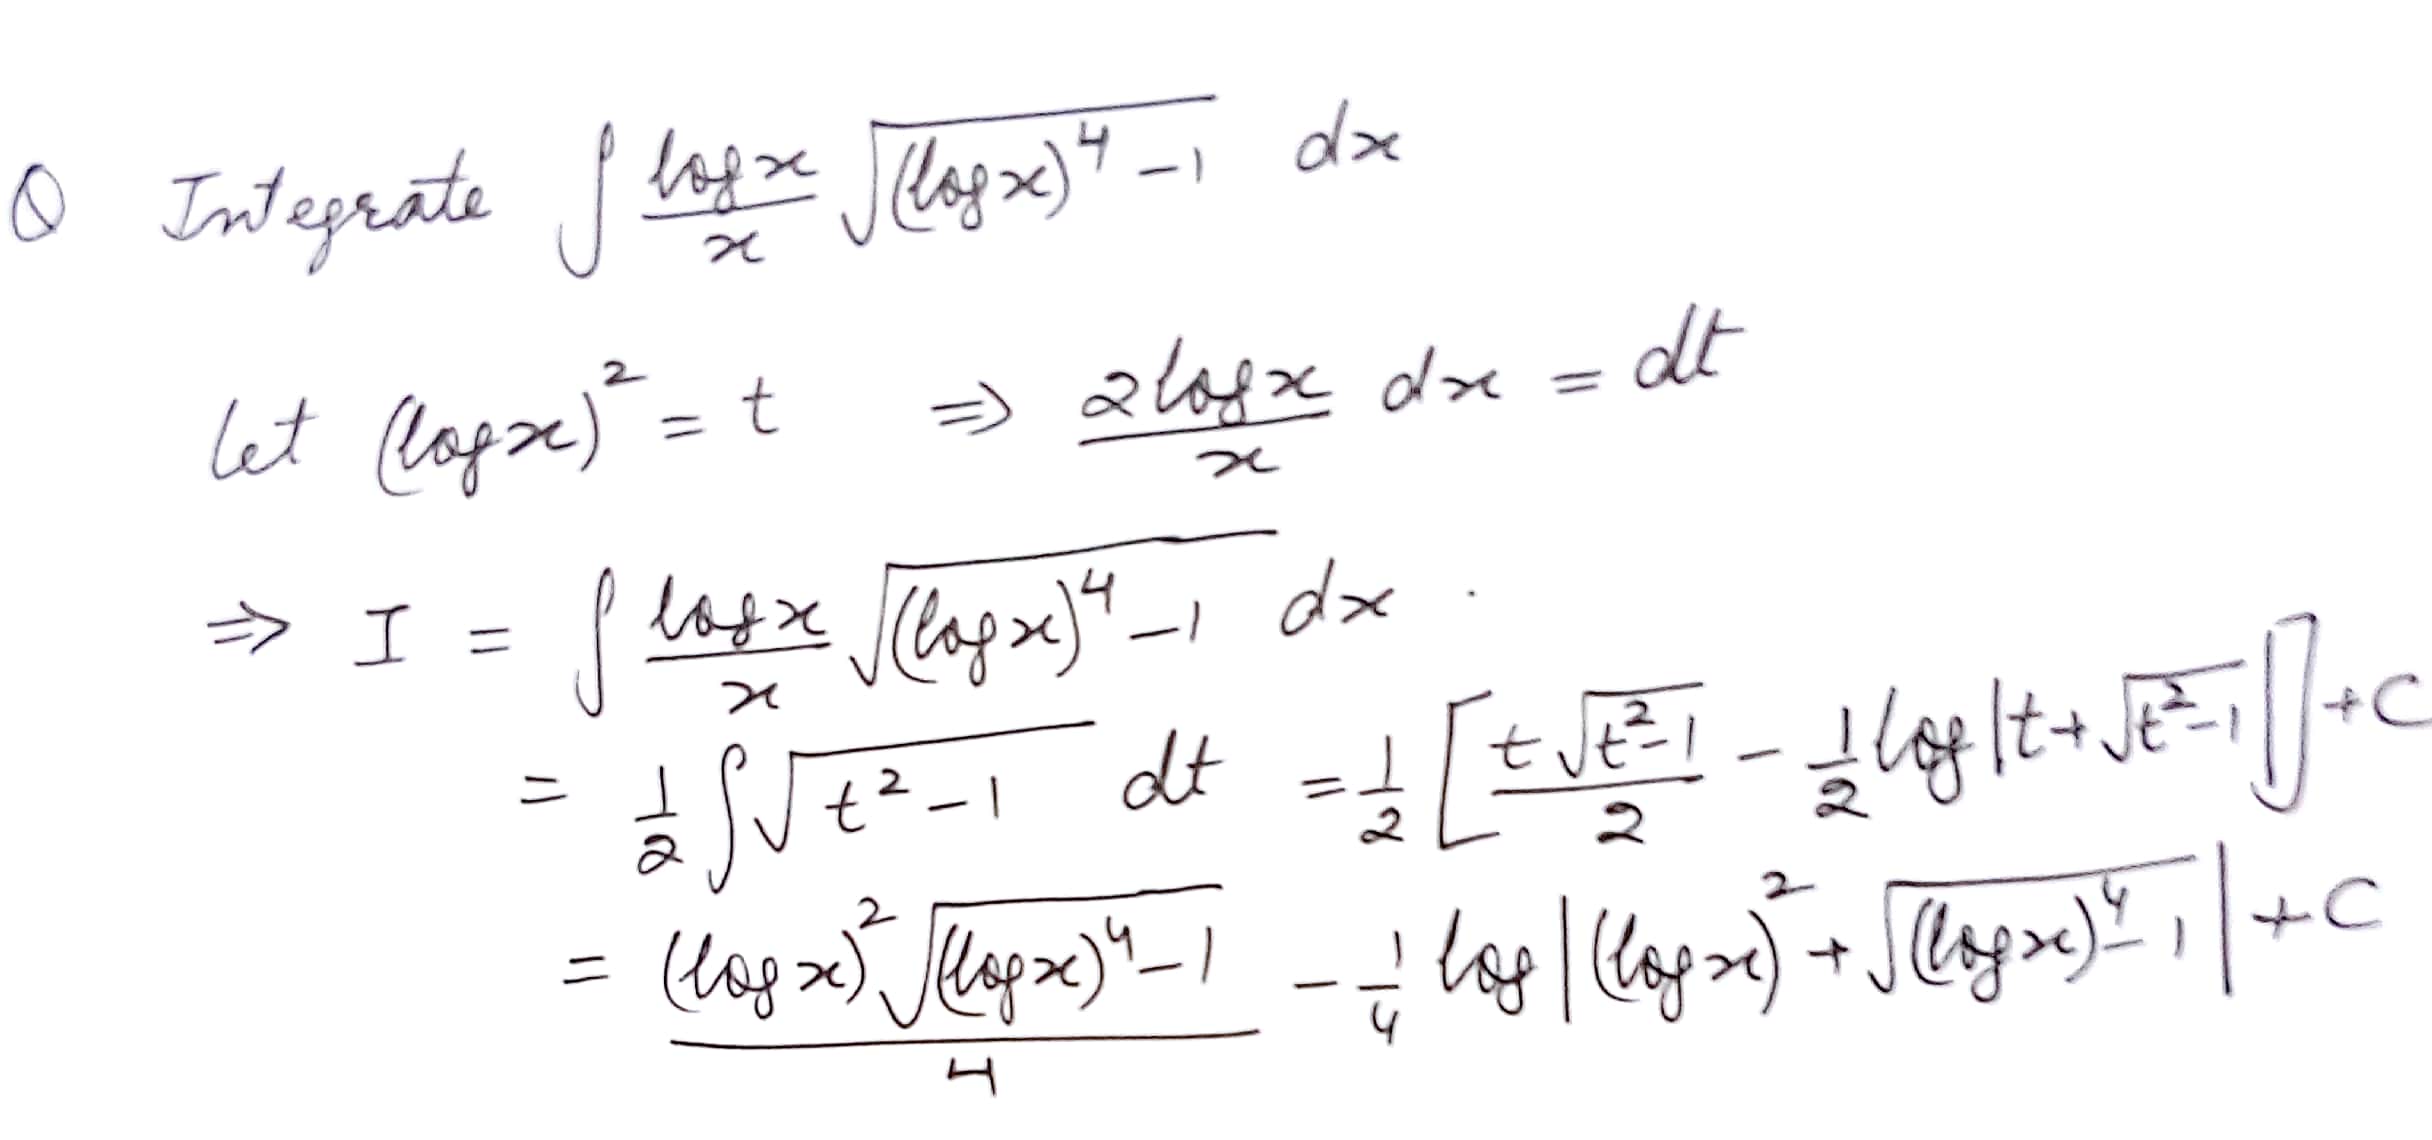 Q Integrate ∫ (log x)/x √((log x)⁴ − 1) dx
Let (log x)² = t ⇒ (2 log x)/x dx = dt
⇒ I = ∫ (log x)/x √((log x)⁴ − 1) dx .
= 1/2 ∫ √(t² − 1) dt = 1/2 [ (t √(t² − 1))/2 − 1/2 log |t + √(t² − 1)| ] + C
= ((log x)² √((log x)⁴ − 1))/4 − 1/4 log | (log x)² + √((log x)⁴ − 1) | + C